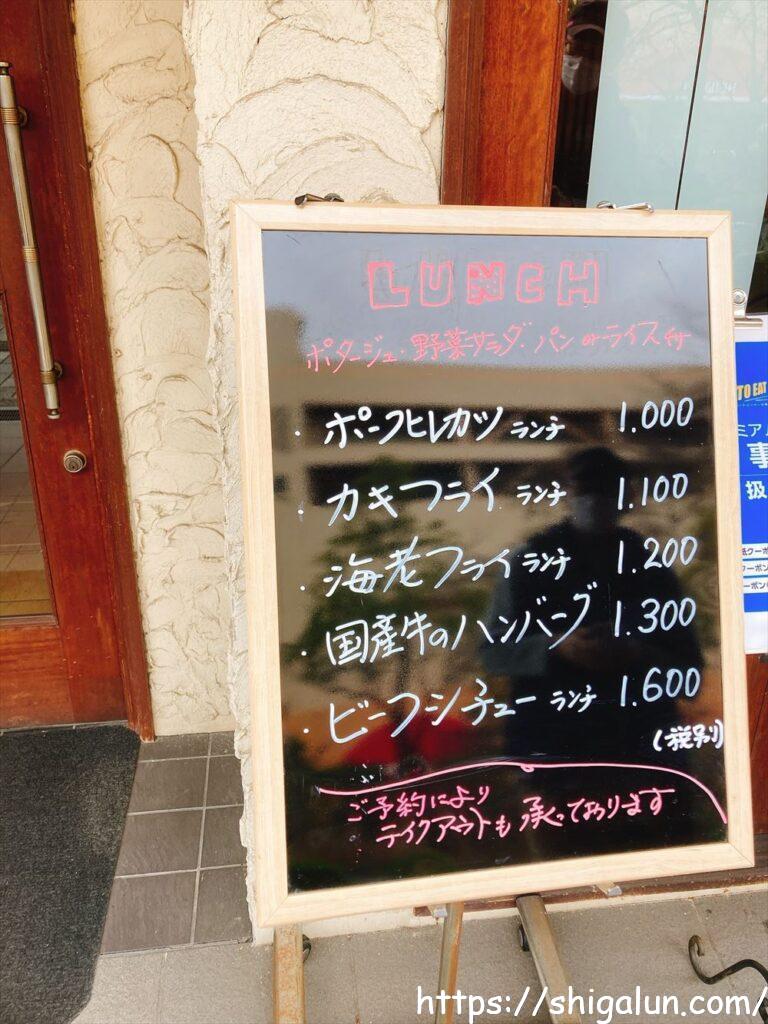 LUNCH
ポタージュ・野菜サラダ・パン or ライス付
・ポークヒレカツ ランチ 1.000
・カキフライ ランチ 1.100
・海老フライ ランチ 1.200
・国産牛のハンバーグ 1.300
・ビーフシチュー ランチ 1.600
(税別)
ご予約により
テイクアウトも承っております
TO EAT
ミア
事
扱
クーポン
https://shigalun.com/